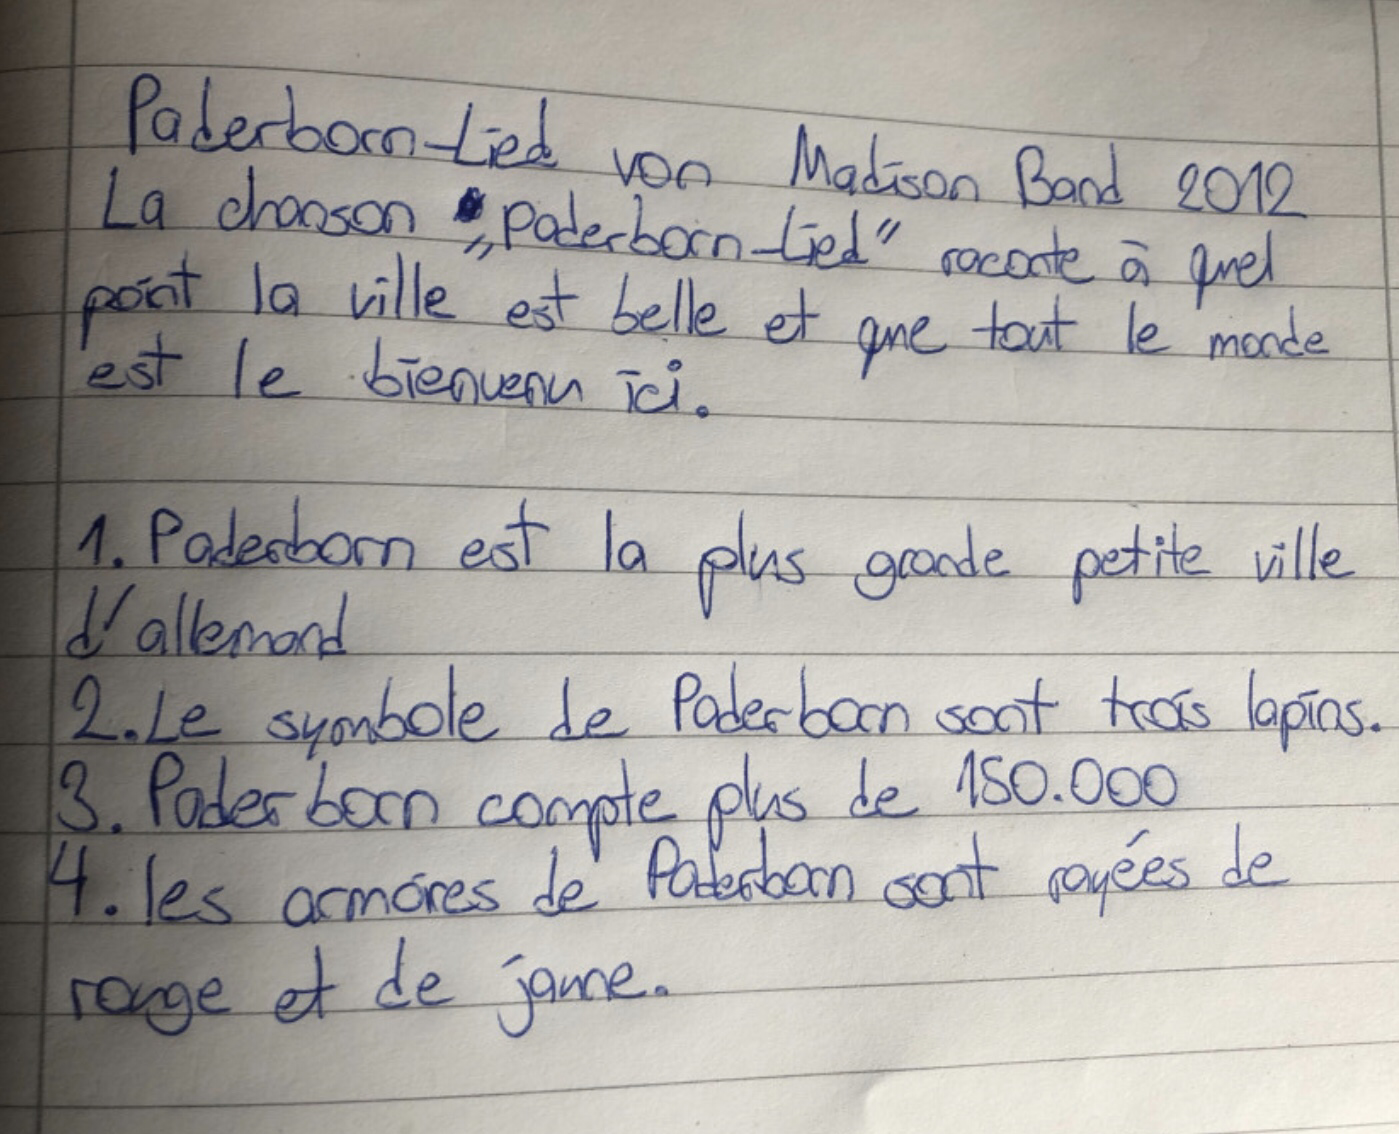 Paderborn-Lied von Madison Band 2012
La chanson „Paderborn-Lied" raconte à quel
point la ville est belle et que tout le monde
est le bienvenu ici.
1. Paderborn est la plus grande petite ville
d'allemand
2. Le symbole de Paderborn sont trois lapins.
3. Paderborn compte plus de 150.000
4. les armoires de Paderborn sont rayées de
rouge et de jaune.